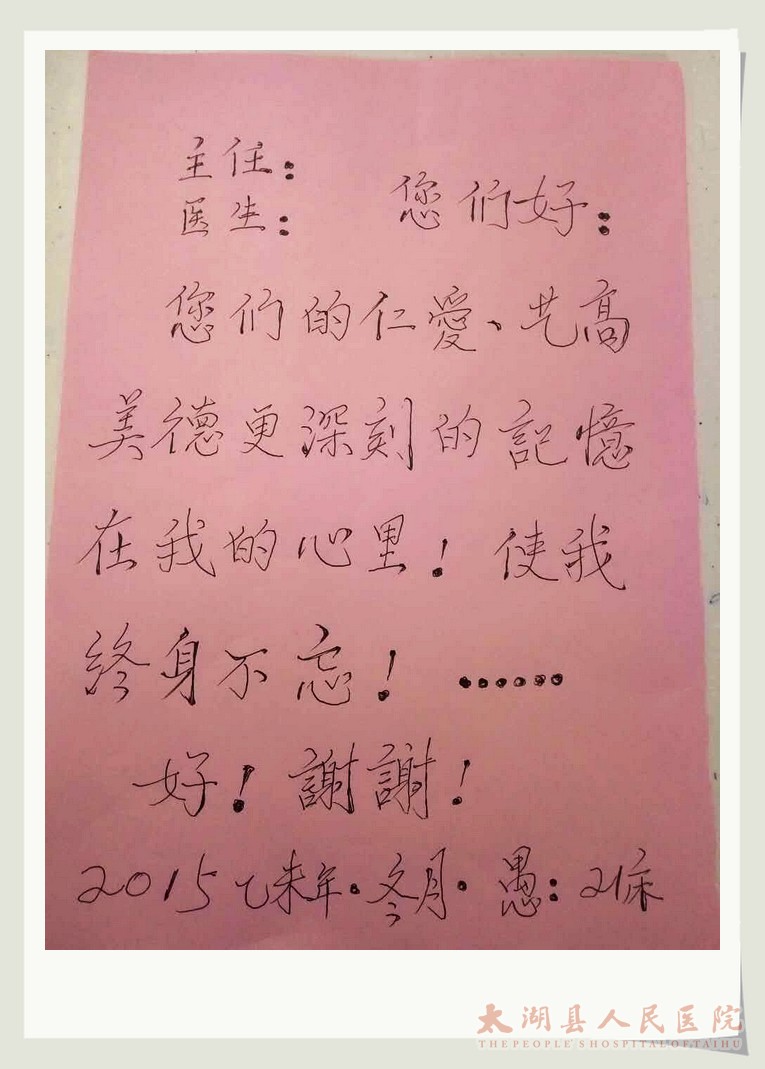 主任：
医生：
您们好：
您们的仁愛、艺高
美德更深刻的記憶
在我的心里！使我
終身不忘！……
好！謝謝！
2015乙未年·冬月·愚：21床
太湖县人民医院
THE PEOPLE'S HOSPITAL OF TAIHU